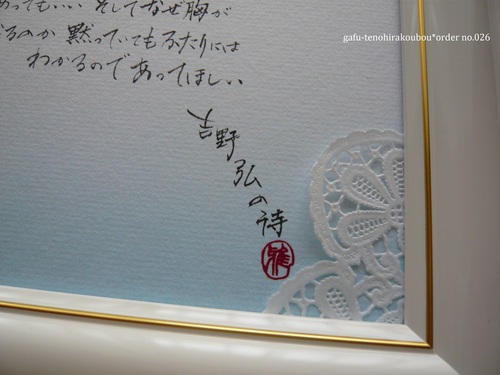 gafu-tenohirakoubou*order no.026
あってもいい そしてなぜ胸が
るのか 黙っていてもふたりには
わかるのであってほしい
吉野弘の詩
雅